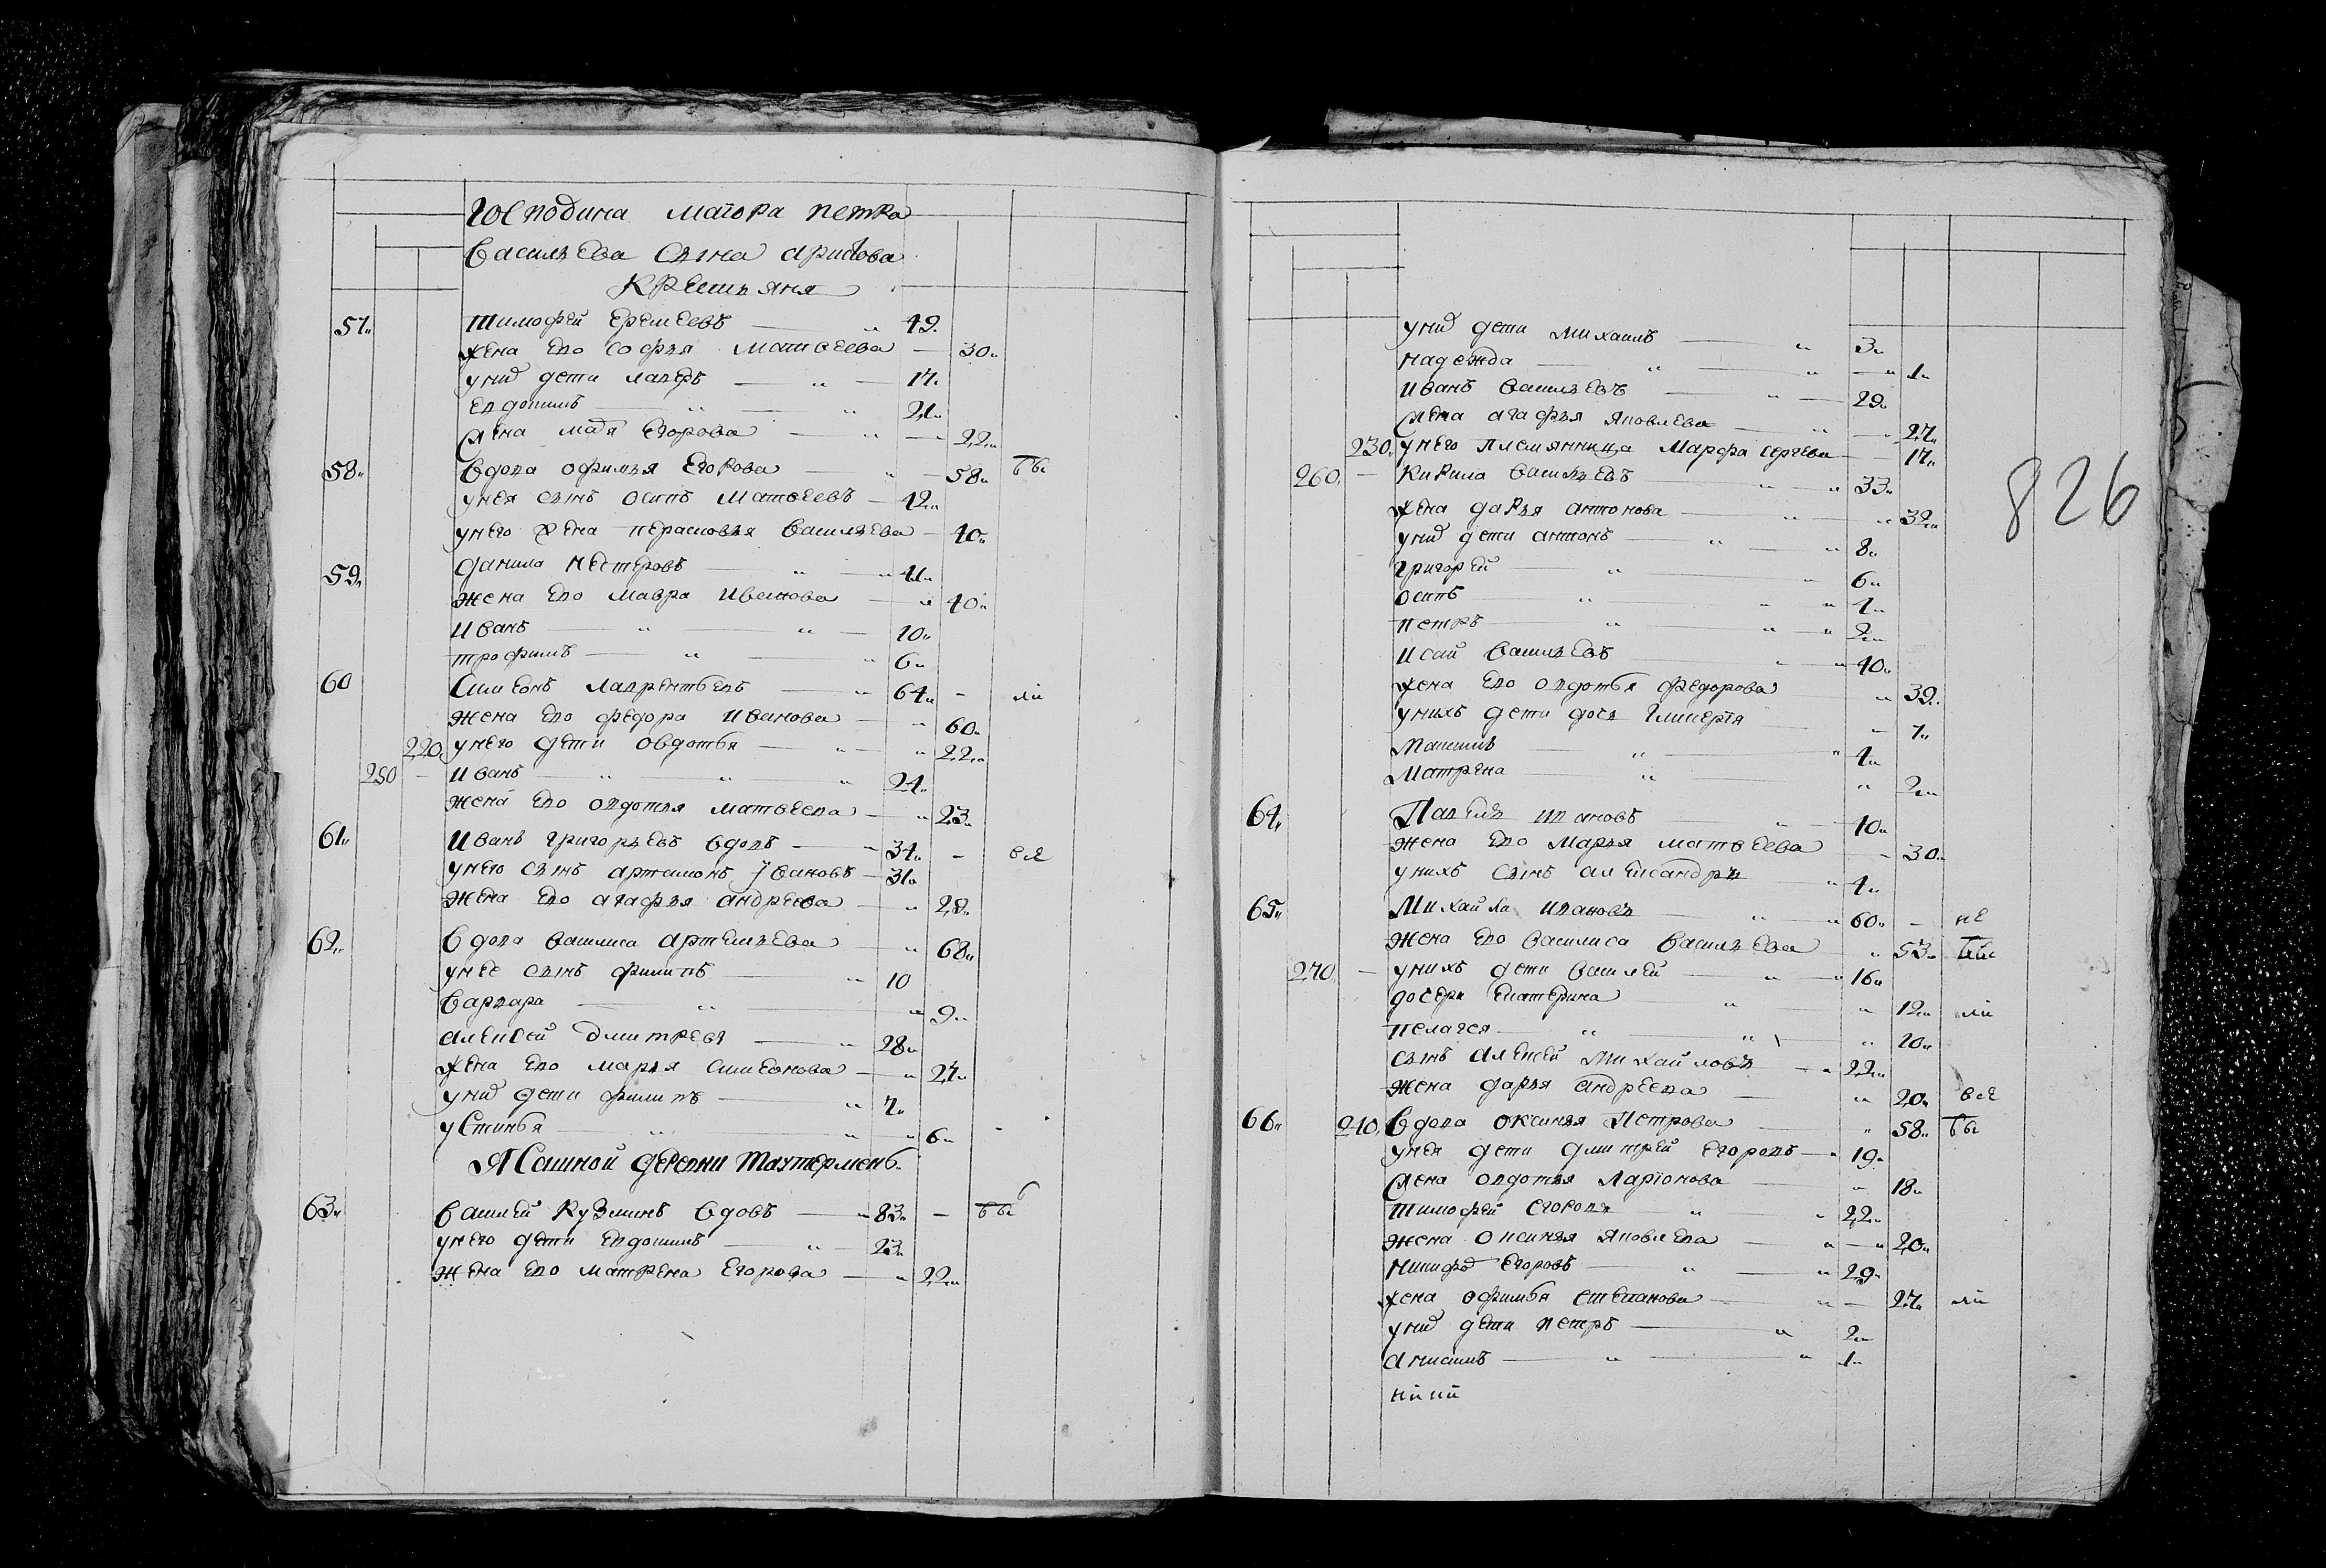 Господина маіора петра
Васильева сына аристова
крестьяня
57 тимофей еремеевъ 49
жена ево софья матвеева 30
у них дети лавер 17
евдоким 21
жена Егорова 22
58 вдова офимья Егорова 58
у нея сынъ осипъ матвеевъ 42
у него жена перасковья васильева 40
59 данила нестеровъ 41
жена ево мавра иванова 40
иванъ 10
трофимъ 6
60 симеонъ лаврентьевъ 64
жена ево федора иванова 60
220 у него дети овдотья 22
250 иванъ 24
жена ево овдотья матвеева 23
61 иванъ григорьевъ вдовъ
у него сынъ артамонъ ивановъ 31
жена ево агафья андреева 28
62 вдова василиса артемьева 68
у нее сынъ филипъ 10
варвара 9
алексей дмитрев 28
жена ево марья симеонова 27
у них дети филипъ
устинья 6
Ясашной деревни тахтермень
63 василей кузминъ вдовъ 83
у него дети евдокимъ 23
жена ево матрена Егорова 22
826
у них дети михаилъ 3
надежда 1
иванъ васильевъ 29
жена агафья яковлева 27
230 у него племянница марфа сергева 17
260 кирила васильевъ 33
жена дарья антонова 32
у них дети антонъ 8
григорей 6
осипъ
петръ 2
исай васильевъ 40
жена ево овдотья федорова 39
у нихъ дети дочь
максимъ
матрена 2
64 павелъ ивановъ 40
жена ево марья матвеева 30
у нихъ сынъ александръ
65 михайла ивановъ 60
жена ево василиса васильева 53
270 у нихъ дети василей 16
дочери екатерина 12
пелагея 10
сынъ алексей михайловъ 22
жена дарья андреева 20
66 240 вдова оксинья петрова 58
у нея дети дмитрей егоровъ 19
жена овдотья ларіонова 18
тимофей егоровъ 22
жена оксинья яковлева 20
егоровъ 29
жена офимья степанова 27
у них дети петръ 2
анисимъ 1